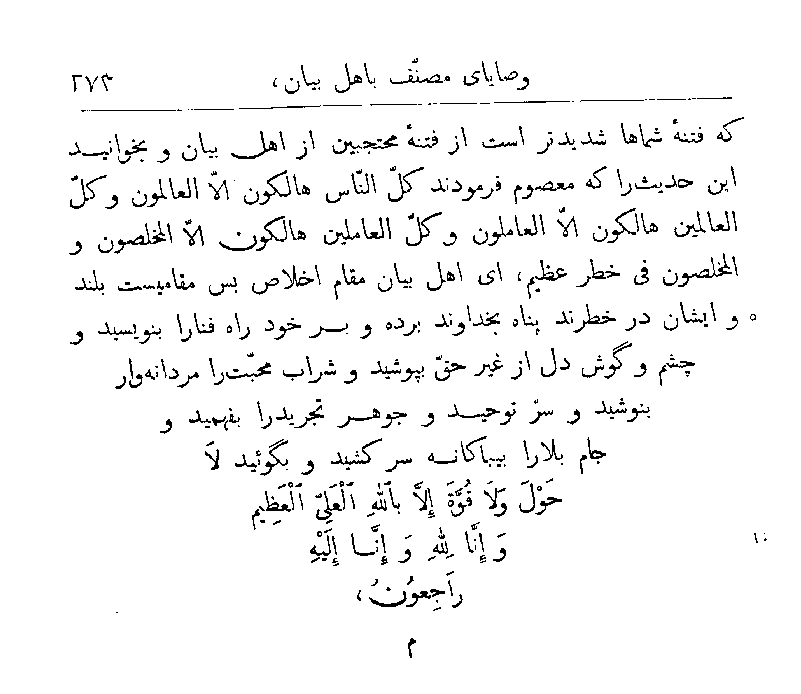 وصایای مصنّف باهل بیان، ۲۷۳
که فتنهٔ شماها شدیدتر است از فتنهٔ محتجبین از اهل بیان و بخوانید
این حدیث‌را که معصوم فرمودند کلّ النّاس هالکون الّا العالمون و کلّ
العالمین هالکون الّا العاملون و کلّ العاملین هالکون الّا المخلصون و
المخلصون فی خطر عظیم، ای اهل بیان مقام اخلاص بس مقامیست بلند
و ایشان در خطرند پناه بخداوند برده و بر خود راه فنارا بنویسید و ۵
چشم و گوش دل از غیر حقّ بپوشید و شراب محبّت‌را مردانه‌وار
بنوشید و سرّ توحید و جوهر تجریدرا بفهمید و
جام بلارا بیباکانه سر کشید و بگوئید لَا
حَوْلَ وَلَا قُوَّةَ إِلَّا بِٱللهِ ٱلْعَلِیِّ ٱلْعَظِیمِ
وَ إِنَّا لِلهِ وَ إِنَّا إِلَیْهِ ۱۰
رَاجِعُونَ،
م